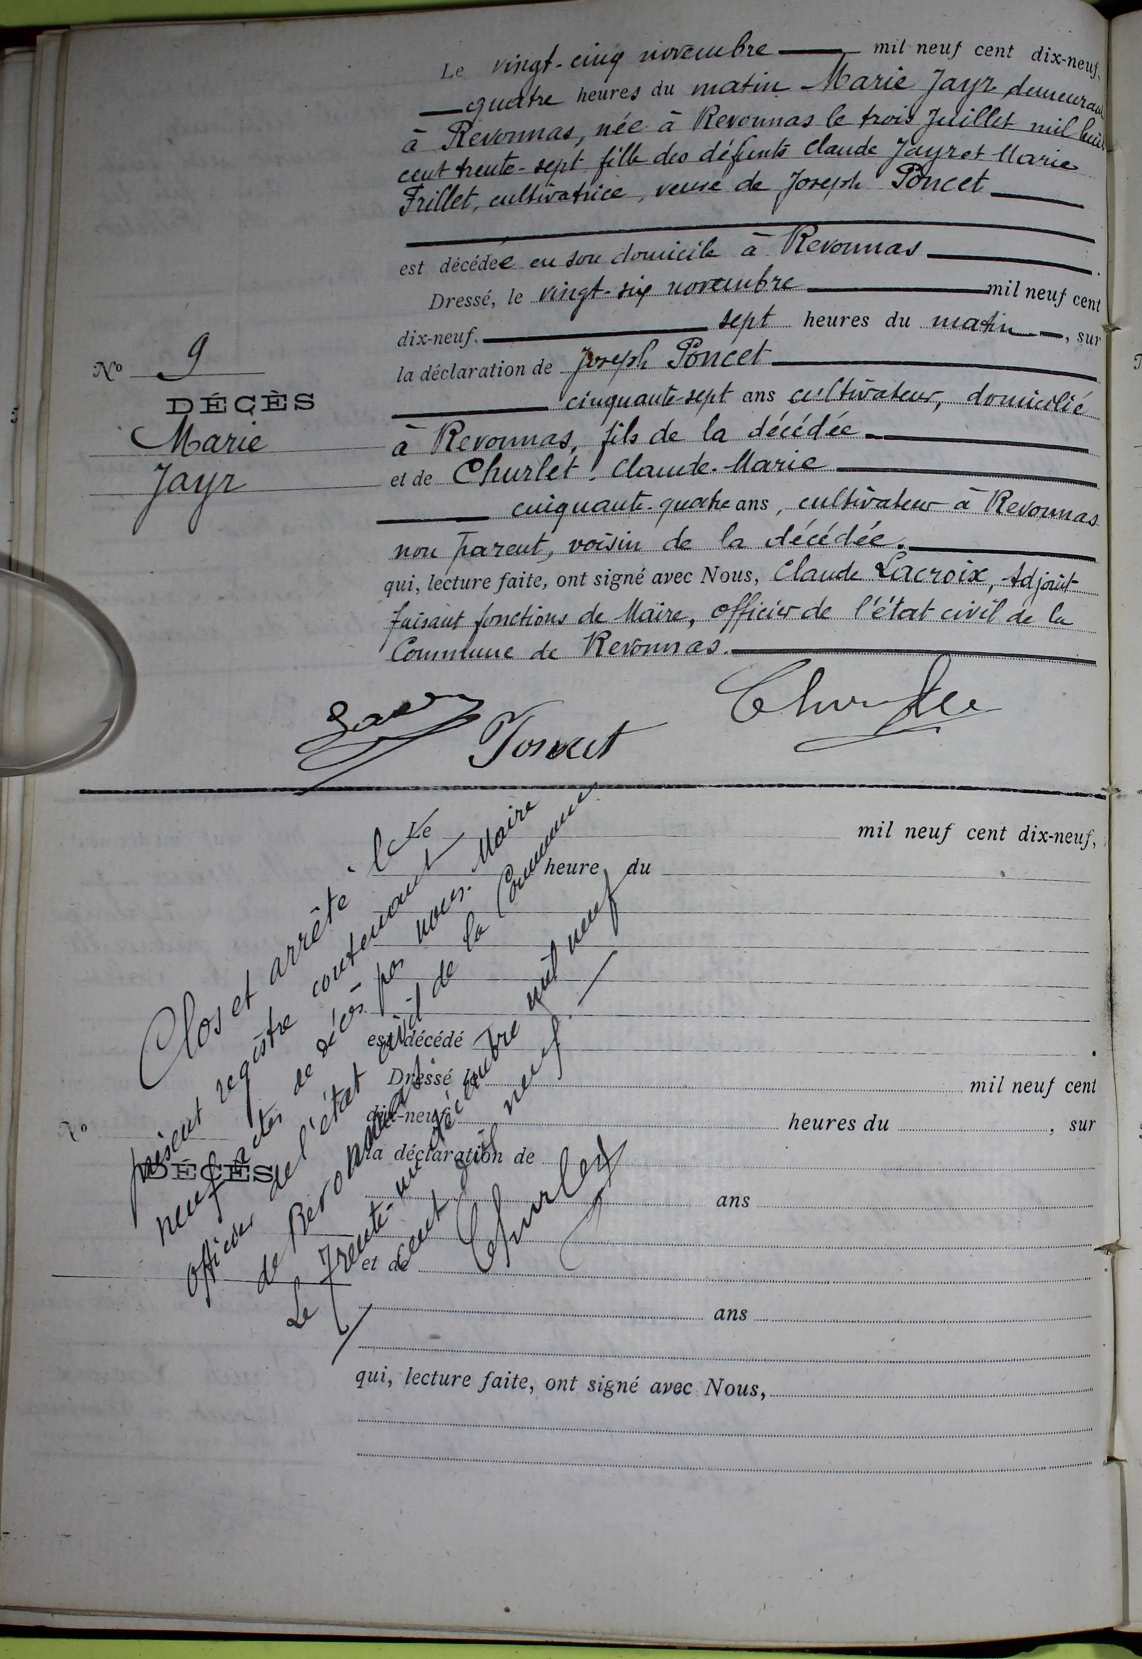 Le vingt-cinq novembre mil neuf cent dix-neuf,
quatre heures du matin Marie Jayr demeurant
à Revonnas, née à Revonnas le trois Juillet mil huit
cent trente-sept fille des défunts Claude Jayr et Marie
Frillet, cultivatrice, veuve de Joseph Poncet
est décédée en son domicile à Revonnas.
Dressé, le vingt-six novembre mil neuf cent
dix-neuf. sept heures du matin, sur
la déclaration de Joseph Poncet
cinquante-sept ans cultivateur, domicilié
à Revonnas, fils de la décédée
et de Churlet Claude-Marie
cinquante-quatre ans, cultivateur à Revonnas
non parent, voisin de la décédée.
qui, lecture faite, ont signé avec Nous, Claude Lacroix, Adjoint
faisant fonctions de Maire, officier de l'état civil de la
Commune de Revonnas.
No 9
DÉCÈS
Marie
Jayr
Poncet
Le mil neuf cent dix-neuf,
heure du
est décédé .
Dressé le mil neuf cent
dix-neuf heures du , sur
la déclaration de
ans
et de
ans
qui, lecture faite, ont signé avec Nous,
No
DÉCÈS
Clos et arrêté le
présent registre contenant
neuf actes de décès par nous Maire
officier de l'état civil de la Commune
de Revonnas
Le trente-un décembre mil neuf
cent dix neuf.
Churlet